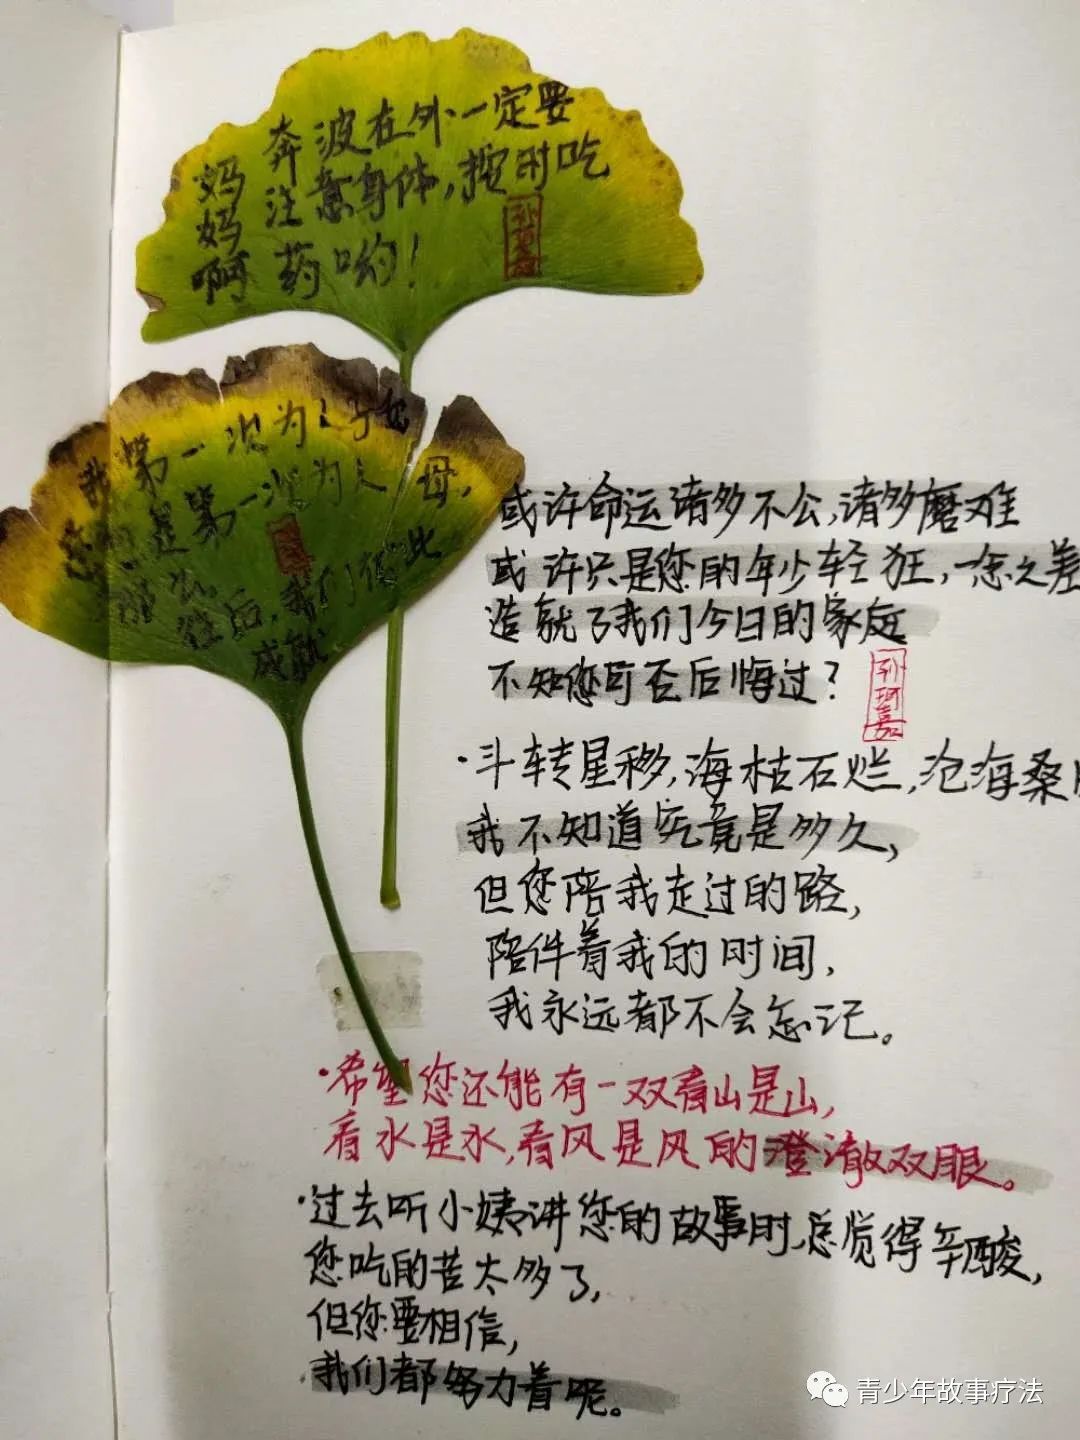 妈妈啊
奔波在外一定要
注意身体，按时吃
药哟！
我第一次为人子女
您是第一次为人父母，
往后，我们彼此
成就
或许命运诸多不公，诸多磨难
或许只是您的年少轻狂，一念之差
造就了我们今日的家庭
不知您可否后悔过？
孙珂嘉
·斗转星移，海枯石烂，沧海桑
我不知道究竟是多久，
但您陪我走过的路，
陪伴着我的时间，
我永远都不会忘记。
·希望您还能有一双看山是山，
看水是水，看风是风的澄澈双眼。
·过去听小姨讲您的故事时，总觉得辛酸，
您吃的苦太多了，
但您要相信，
我们都努力着呢。
青少年故事疗法